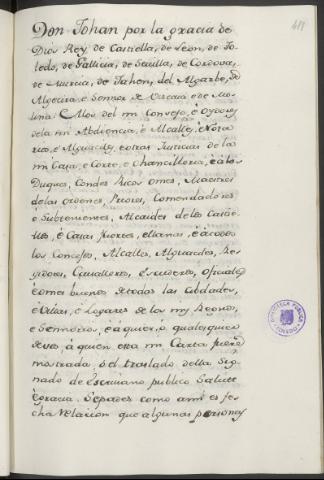 Don Johan por la gracia de
Dios Rey de Castiella, de Leon, de To-
ledo, de Gallicia, de Sevilla, de Cordova,
de Murcia, de Jahen, del Algarbe, de
Algecira, è Sennor de Vizcaia è de Mo-
lina. A los del mi Consejo, è Oydores
de la mi Abdiencia, è Alcalles, è Nota
rios, è Alguaciles, è otras Justicias de la
mi Casa, è Corte, è Chancilleria, è à los
Duques, Condes Ricos omes, Maestres
de las ordenes, Priores, Comendadores
è Subcomendadores, Alcaides de los Casti-
llos, è Casas fuertes, è llanas, è à todos
los Concejos, Alcalles, Alguaciles, Re-
gidores, Cavalleros, Escuderos, Oficiales
è omes buenos de todas las Cibdades,
è Villas, è Logares de los mis Regnos,
è Sennorios, è a qualquier, ò qualesquier
de vos à quien esta mi Carta fuere
mostrada, ò el traslado della Sig-
nado de Escrivano publico Salut
è gracia. Sepades como à mi es fe-
cha Relacion que algunas personas
BIBLIOTECA PUBLICA
TOLEDO